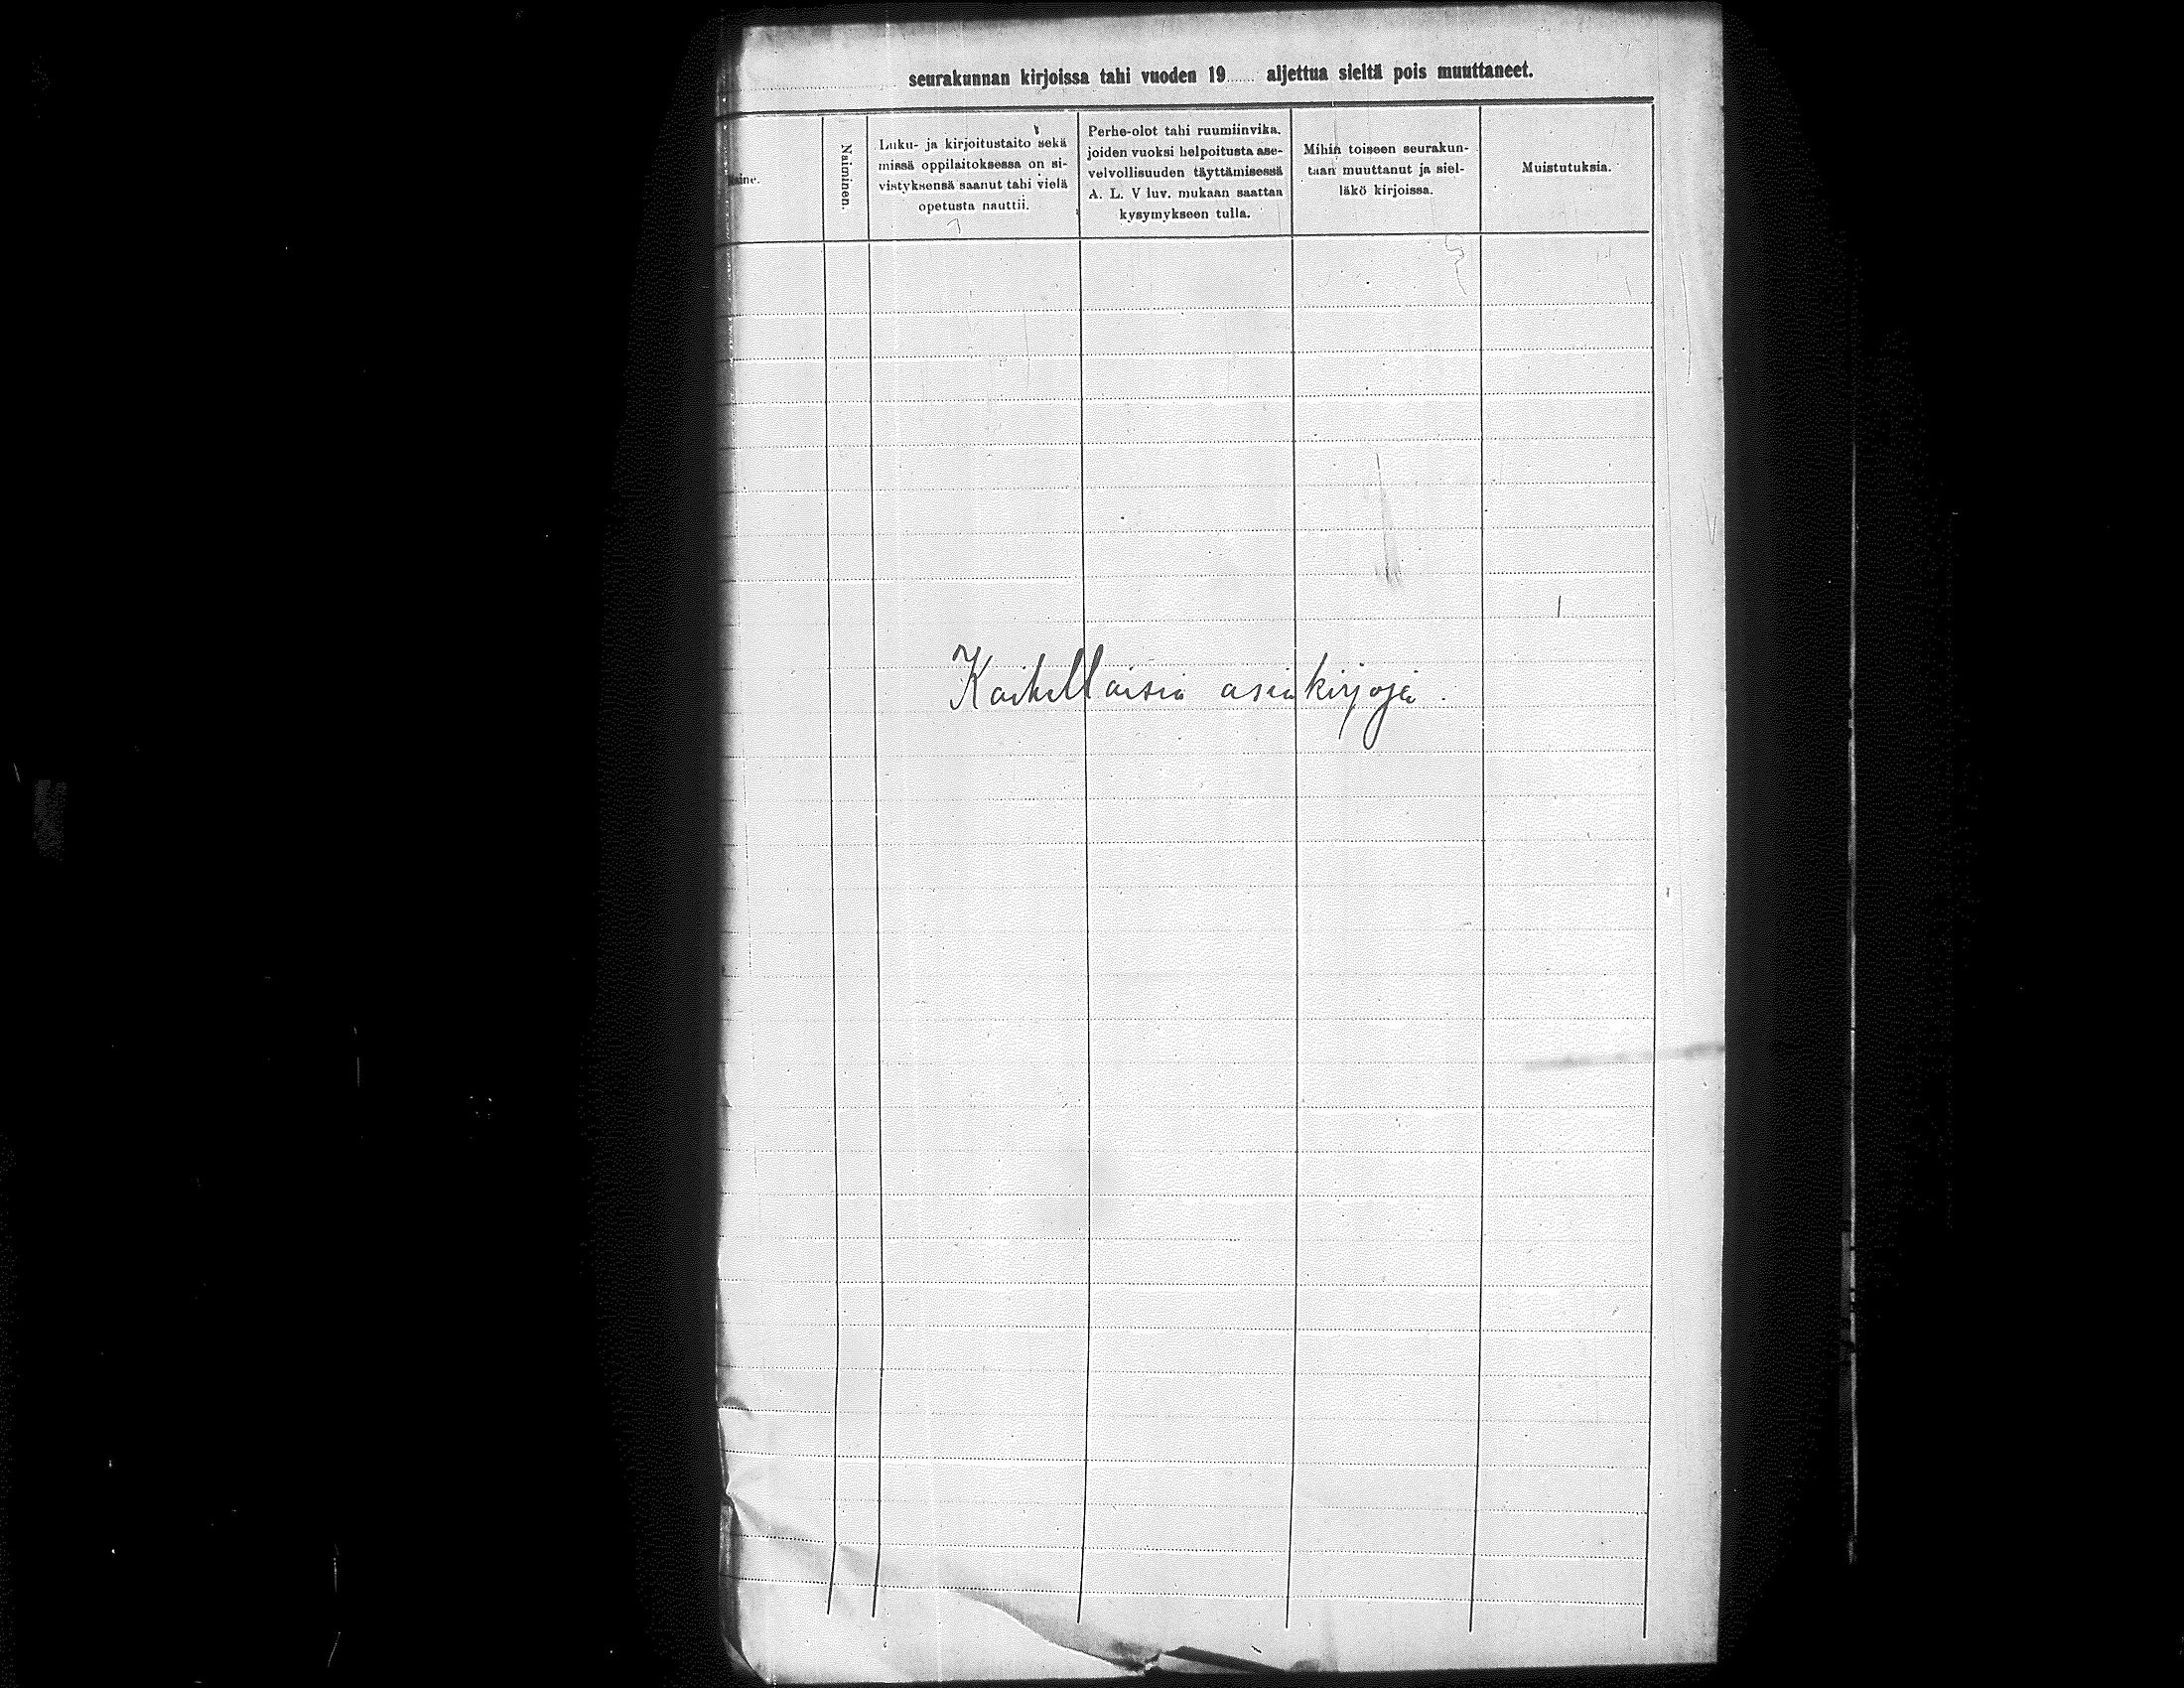 seurakunnan kirjoissa tahi vuoden 19...... aljettua sieltä pois muuttaneet.
Naiminen.
Luku- ja kirjoitustaito sekä
missä oppilaitoksessa on si-
vistyksensä saanut tahi vielä
opetusta nauttii.
Perhe-olot tahi ruumiinvika,
joiden vuoksi helpoitusta ase-
velvollisuuden täyttämisessä
A. L. V luv. mukaan saattaa
kysymykseen tulla.
Mihin toiseen seurakun-
taan muuttanut ja siel-
läkö kirjoissa.
Muistutuksia.
Kaikellaisia asiakirjoja.